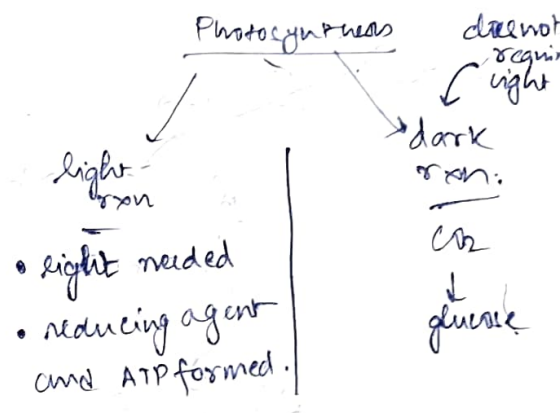 Photosynthesis
does not
requi
light
light
rxn
dark
rxn.
• light needed
• reducing agent
and ATP formed.
CO2
↓
glucose